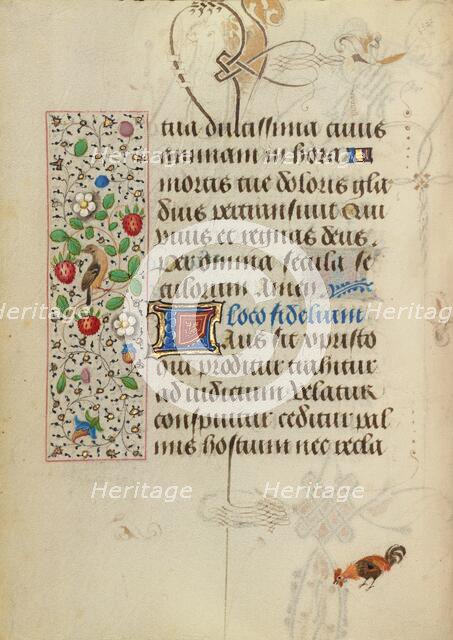 tua dulcissima cuius
Heritage Heritage
animam in hora
mortis tue doloris gla
dius pertransiuit Qui
viuis et regnas deus.
Per omnia secula se
culorum Amen
Heritage Heritage
loco fidelium
Laus sit xpristo
qui proditur trahitur
ad iudicium velatur
conspuitur ceditur pal
mis hostium nec recla
Heritage Heritage